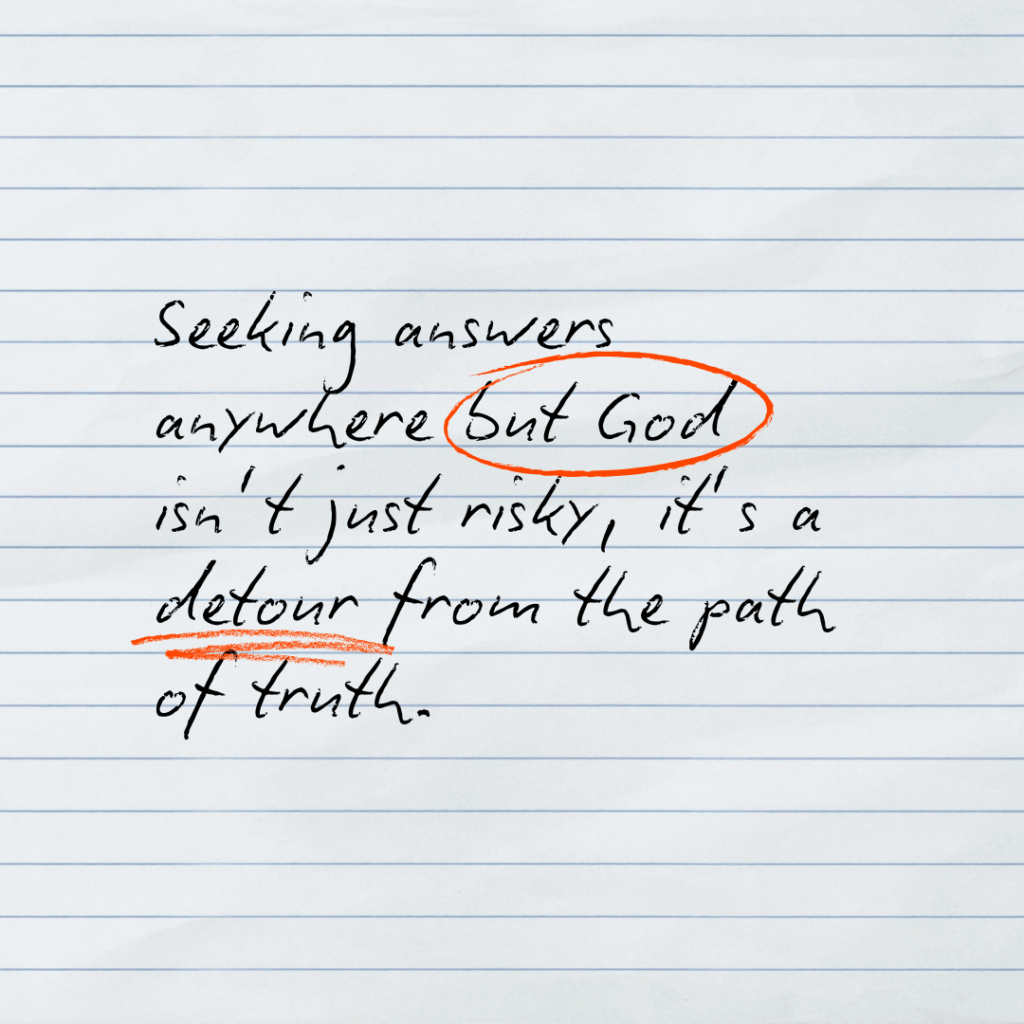 Seeking answers
anywhere but God
isn't just risky, it's a
detour from the path
of truth.